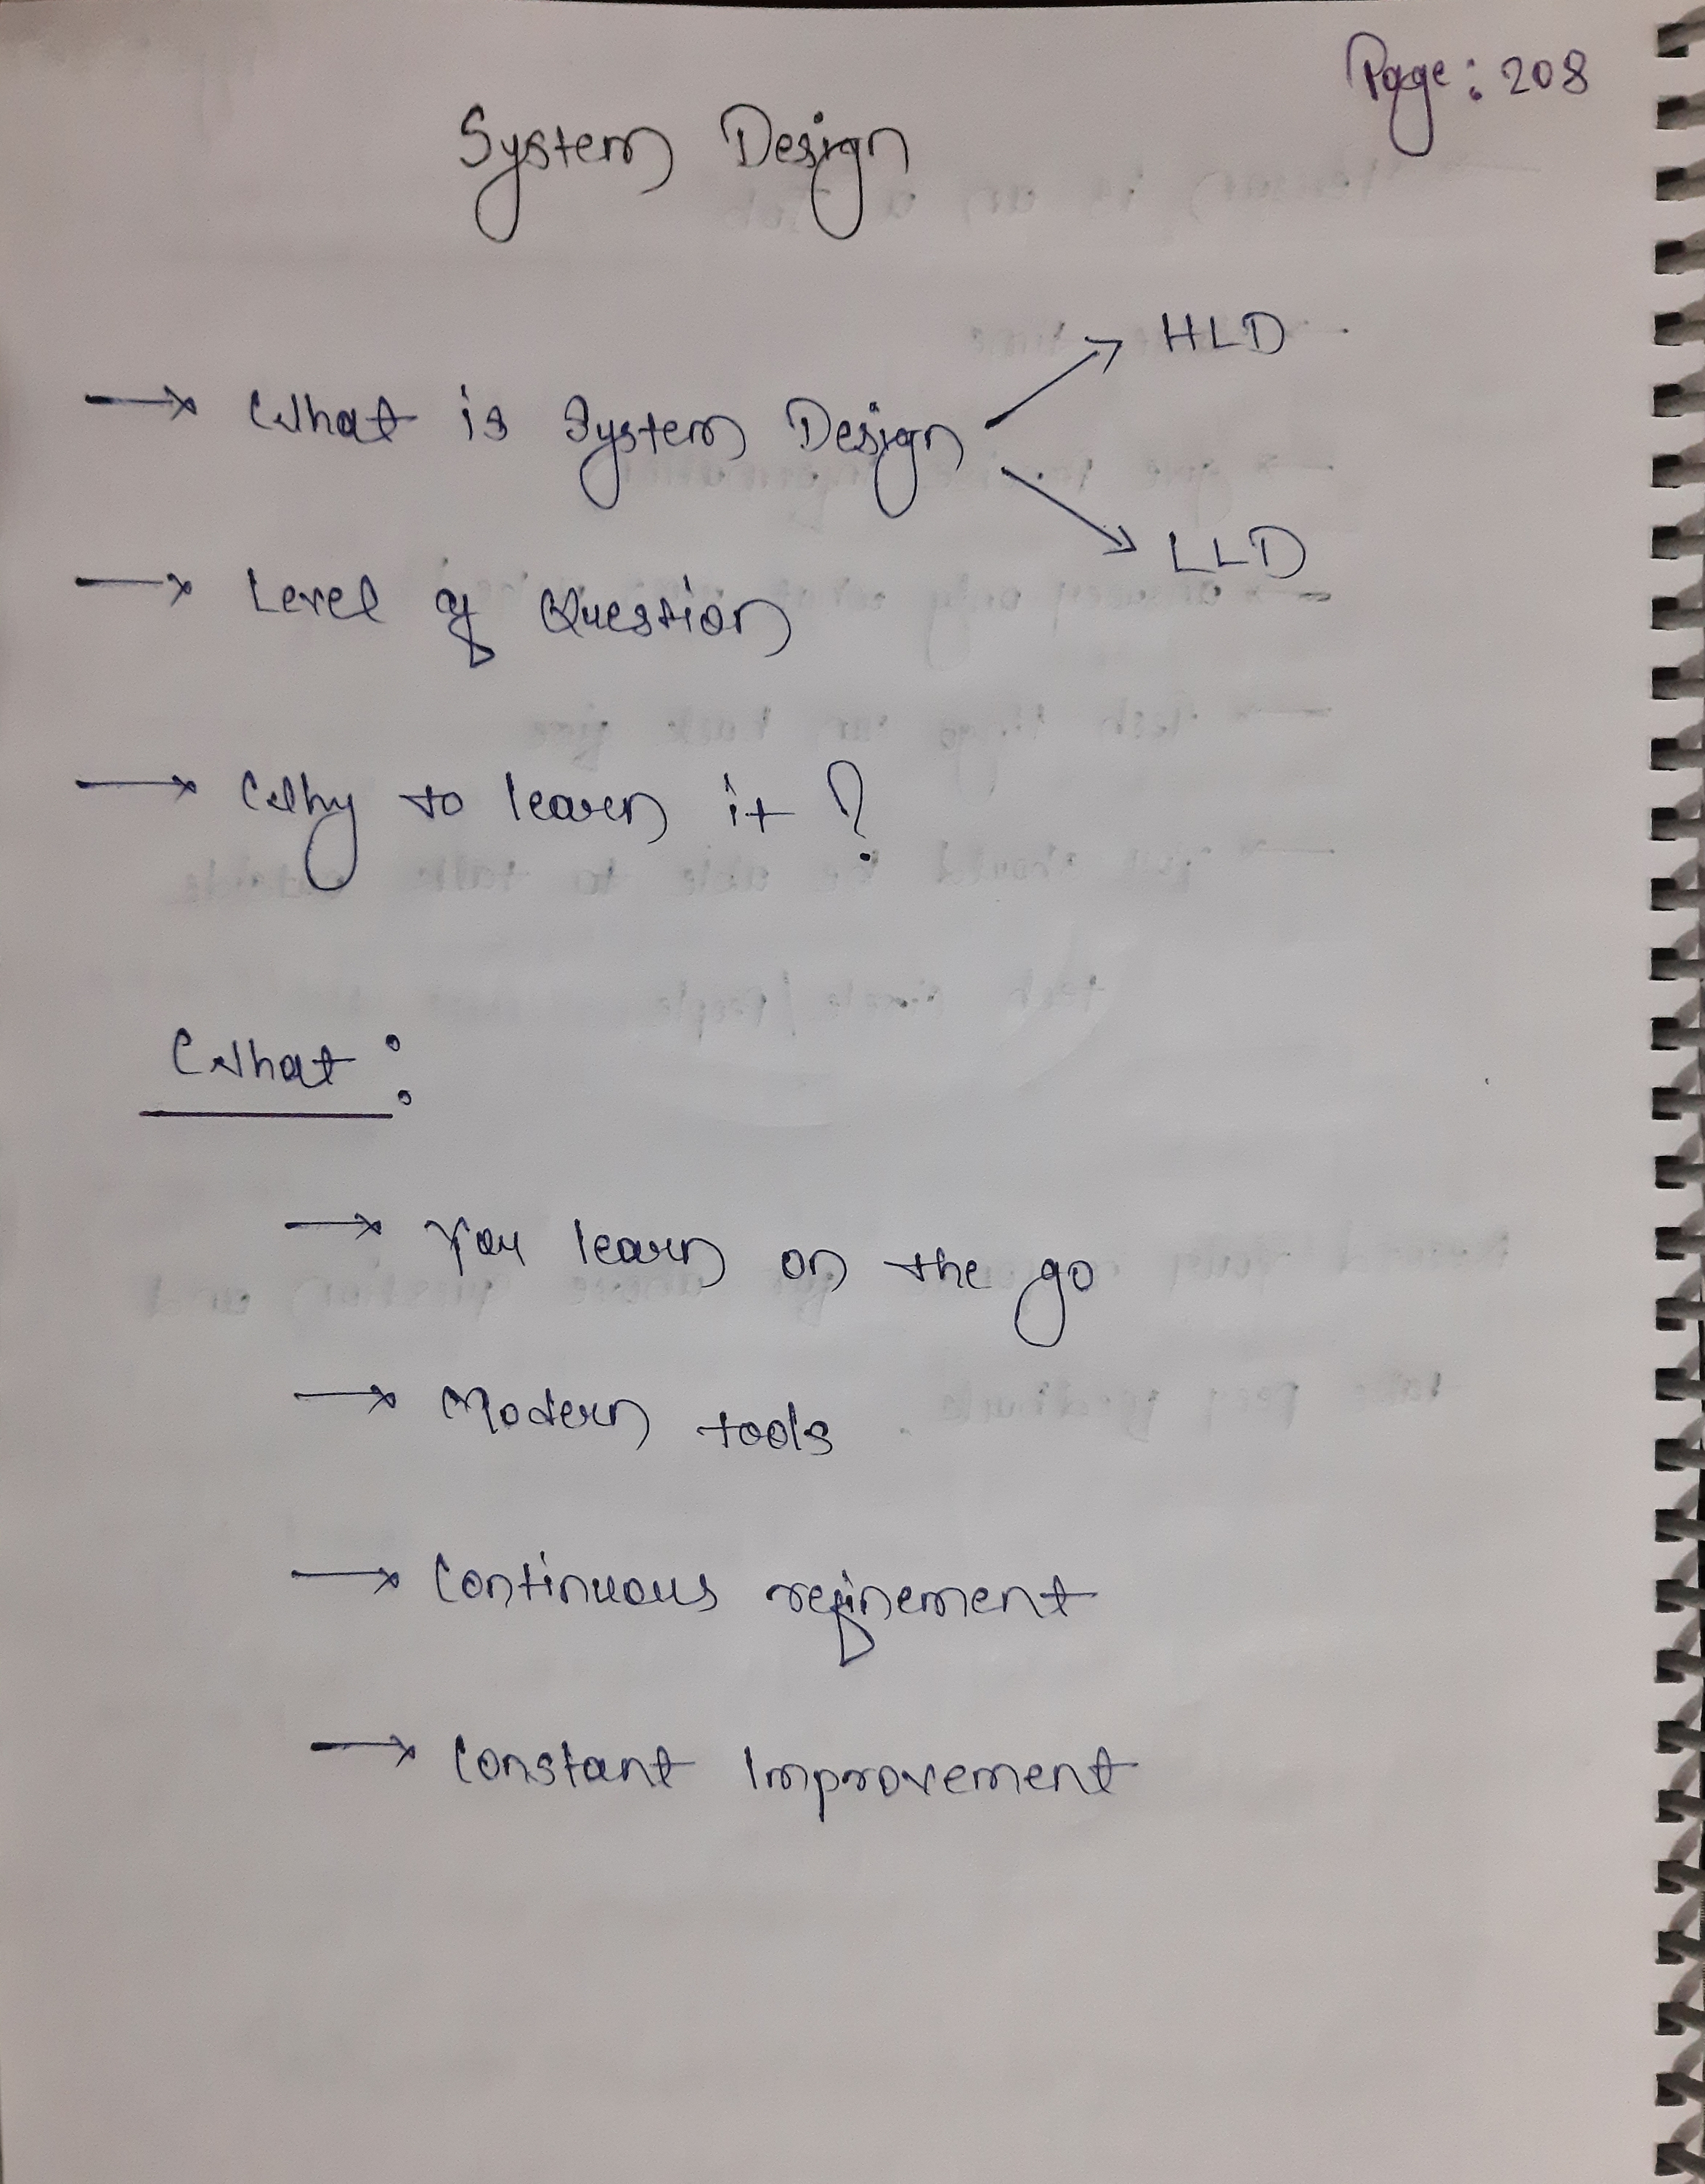 Page: 208
System Design
→ What is System Design → HLD
→ LLD
→ Level of Question
→ Why to learn it ?
What :
→ You learn on the go
→ Modern tools
→ Continuous refinement
→ Constant Improvement